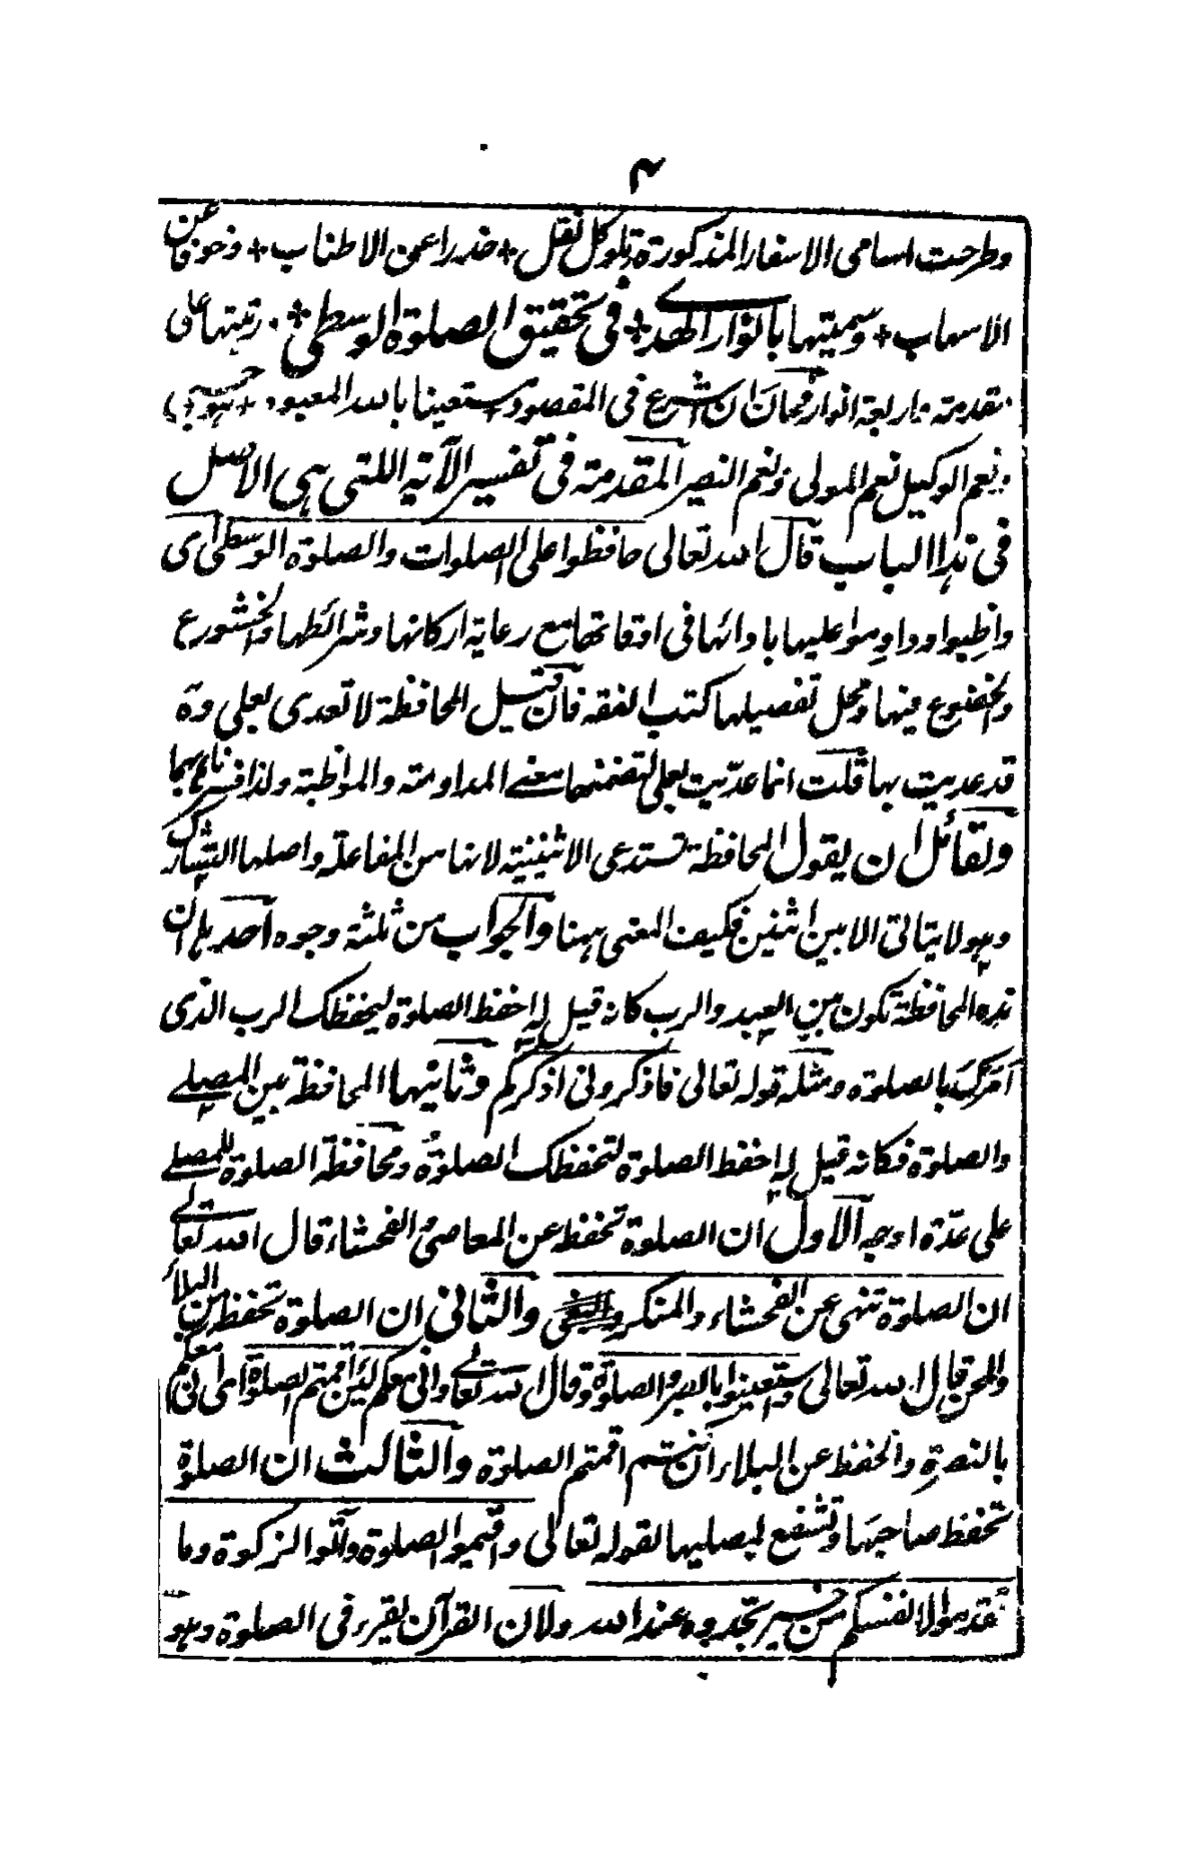 ۴
وطرحت اسامی الاسفار المذکورة تلو کل نقل + حذرا عن الاطناب + وخوفا عن
الاسهاب + وسمیتها بانوار الهدی + فی تحقیق الصلوة الوسطی + رتبتها علی
مقدمة واربعة انوار فحان ان اشرع فی المقصود مستعینا بالله المعبود + هو حسبی
ونعم الوکیل نعم المولی ونعم النصیر المقدمة فی تفسیر الآیة اللتی هی الاصل
فی هذا الباب قال الله تعالی حافظوا علی الصلوات والصلوة الوسطی ای
واظبوا وداوموا علیها بادائها فی اوقاتها مع رعایة ارکانها وشرائطها والخشوع
والخضوع فیها ومحل تفصیلها کتب الفقه فان قیل المحافظة لا تعدی بعلی وقد
قد عدیت بها قلت انما عدّیت بعلی لتضمنها معنی المداومة والمواظبة ولذا فسرناه بهما
ولقائل ان یقول المحافظة تستدعی الاثنینیة لانها من المفاعلة واصلها التشارک
وهو لا یتاتی الا بین اثنین فکیف المعنی ههنا والجواب من ثلثة وجوه احدها ان
هذه المحافظة تکون بین العبد والرب کانه قیل له احفظ الصلوة لیحفظک الرب الذی
امرک بالصلوة ومثله قوله تعالی فاذکرونی اذکرکم وثانیها المحافظة بین المصلی
والصلوة فکانه قیل له احفظ الصلوة لتحفظک الصلوة ومحافظة الصلوة للمصلی
علی عدّة اوجه الاول ان الصلوة تحفظ عن المعاصی والفحشاء قال الله تعالی
ان الصلوة تنهی عن الفحشاء والمنکر والثانی ان الصلوة تحفظ من البلاء
والمحن قال الله تعالی واستعینوا بالصبر والصلوة وقال الله تعالی وانی معکم لئن اقمتم الصلوة ای انی معکم
بالنصرة والحفظ عن البلاء ان کنتم اقمتم الصلوة والثالث ان الصلوة
تحفظ صاحبها وتشفع لمصلیها لقوله تعالی واقیموا الصلوة وآتوا الزکوة وما
تقدموا لانفسکم من خیر تجدوه عند الله ولان القرآن یقرء فی الصلوة وهو